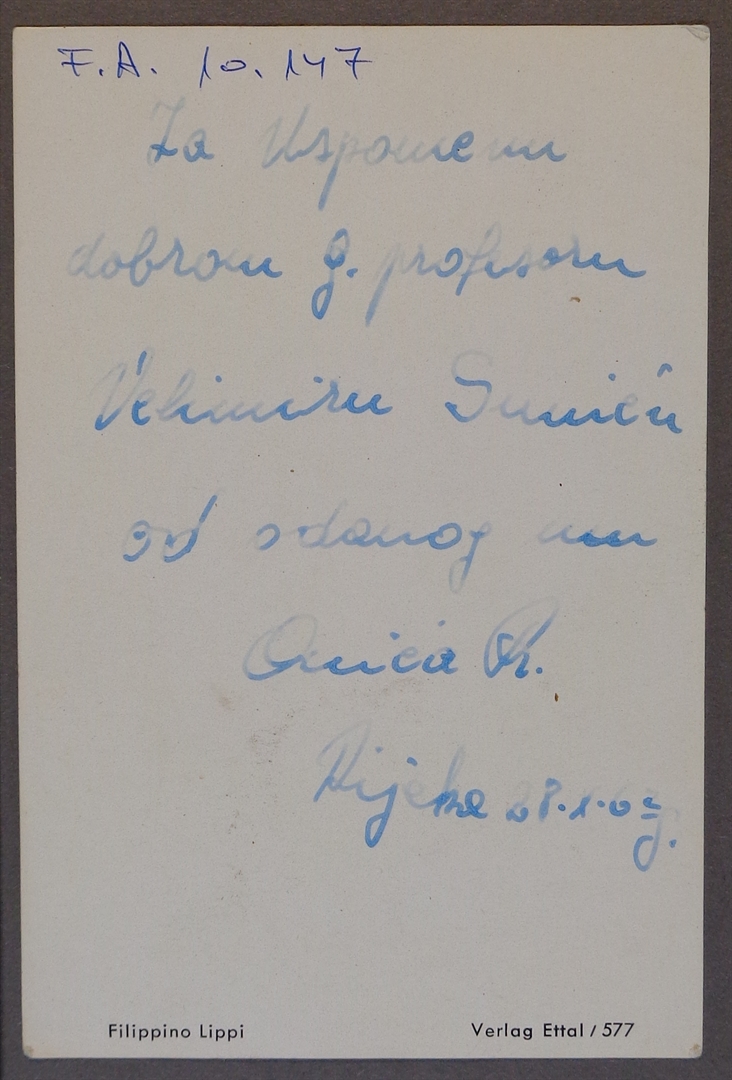 F.A. 10.147
Za Uspomenu
dobrom g. profesoru
Velimiru
od odanog mu
R.
Rijeka
Filippino Lippi
Verlag Ettal / 577